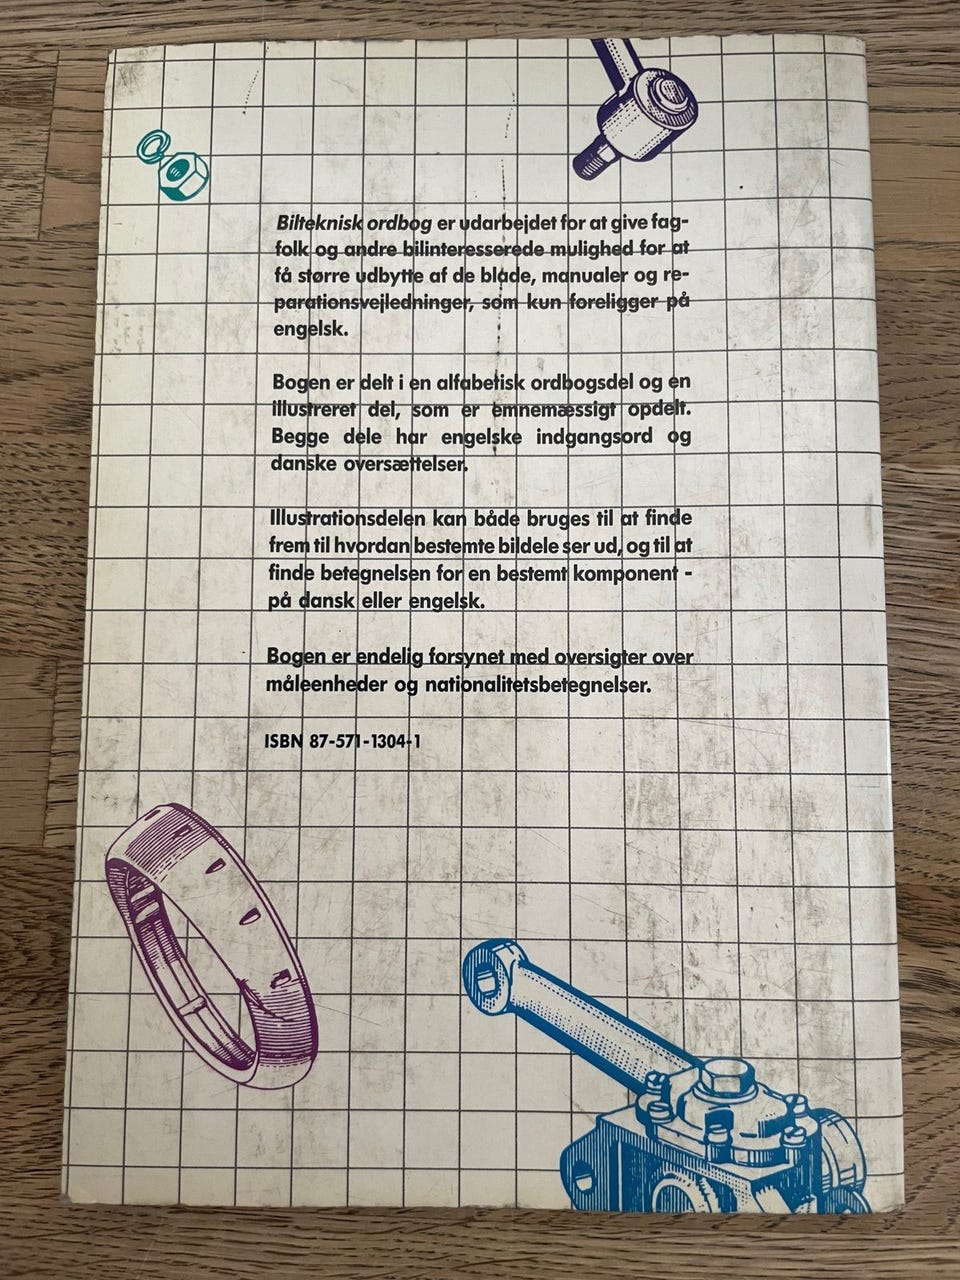 Bilteknisk ordbog er udarbejdet for at give fag-
folk og andre bilinteresserede mulighed for at
få større udbytte af de blade, manualer og re-
parationsvejledninger, som kun foreligger på
engelsk.
Bogen er delt i en alfabetisk ordbogsdel og en
illustreret del, som er emnemæssigt opdelt.
Begge dele har engelske indgangsord og
danske oversættelser.
Illustrationsdelen kan både bruges til at finde
frem til hvordan bestemte bildele ser ud, og til at
finde betegnelsen for en bestemt komponent -
på dansk eller engelsk.
Bogen er endelig forsynet med oversigter over
måleenheder og nationalitetsbetegnelser.
ISBN 87-571-1304-1